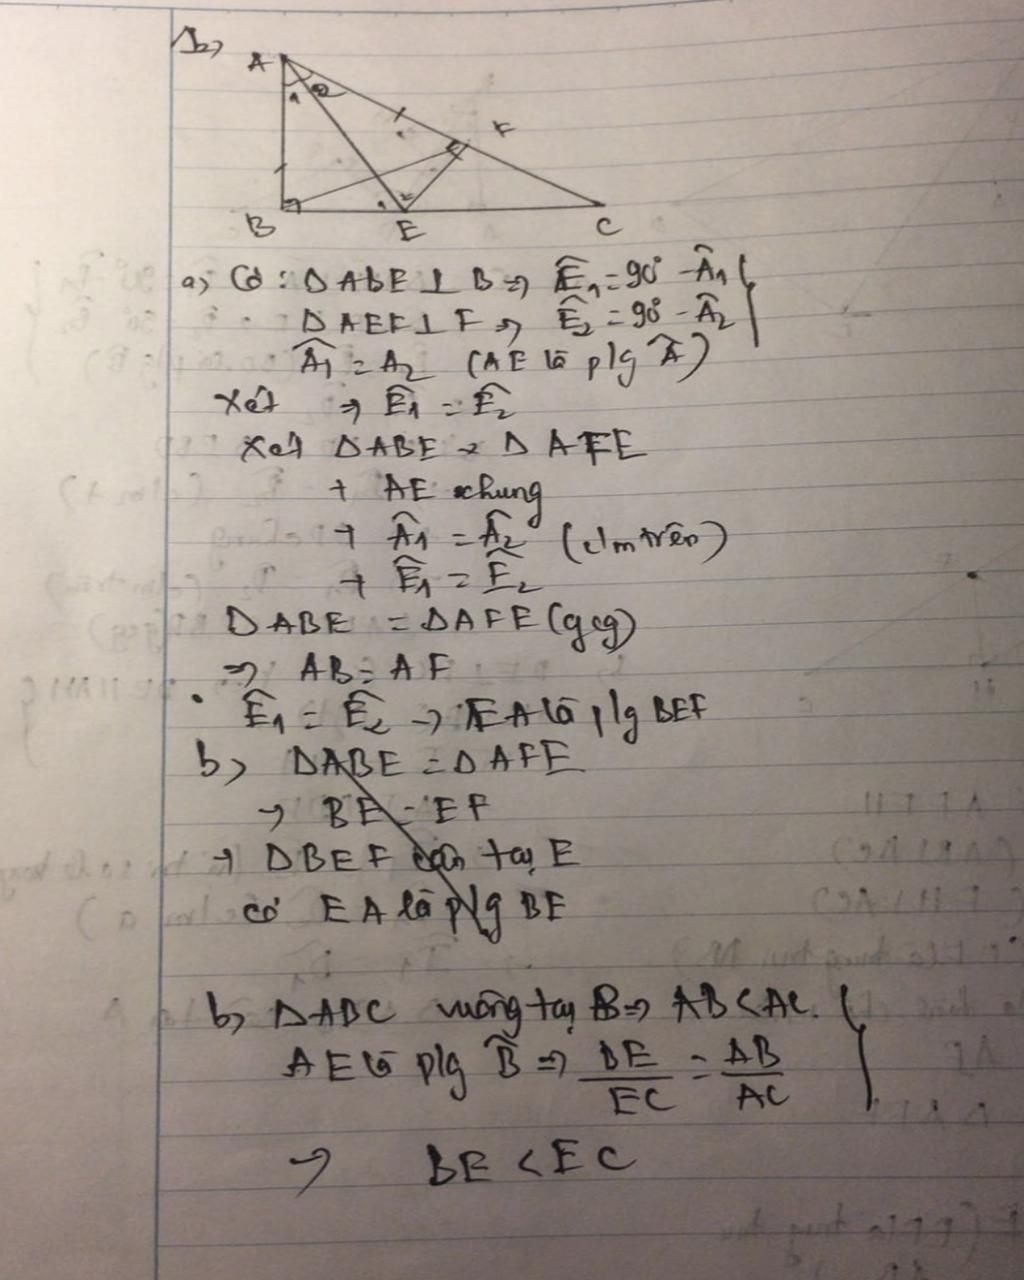 A
1
2
F
B
E
C
a, Có : Δ ABE ⊥ B => Ê₁ = 90° - Â₁
Δ AEF ⊥ F => Ê₂ = 90° - Â₂
Â₁ = A₂ (AE là p/g Â)
Xét => Ê₁ = Ê₂
Xét Δ ABE & Δ AFE
+ AE chung
+ Â₁ = Â₂ (c/m trên)
+ Ê₁ = Ê₂
Δ ABE = Δ AFE (gcg)
=> AB = AF
Ê₁ = Ê₂ -> EA là p/g BEF
b, ΔABE = Δ AFE
-> BE = EF
-> Δ BEF cân tại E
có EA là p/g BE
b, Δ ABC vuông tại B => AB < AC.
AE là p/g B̂ => BE/EC = AB/AC
=> BE < EC